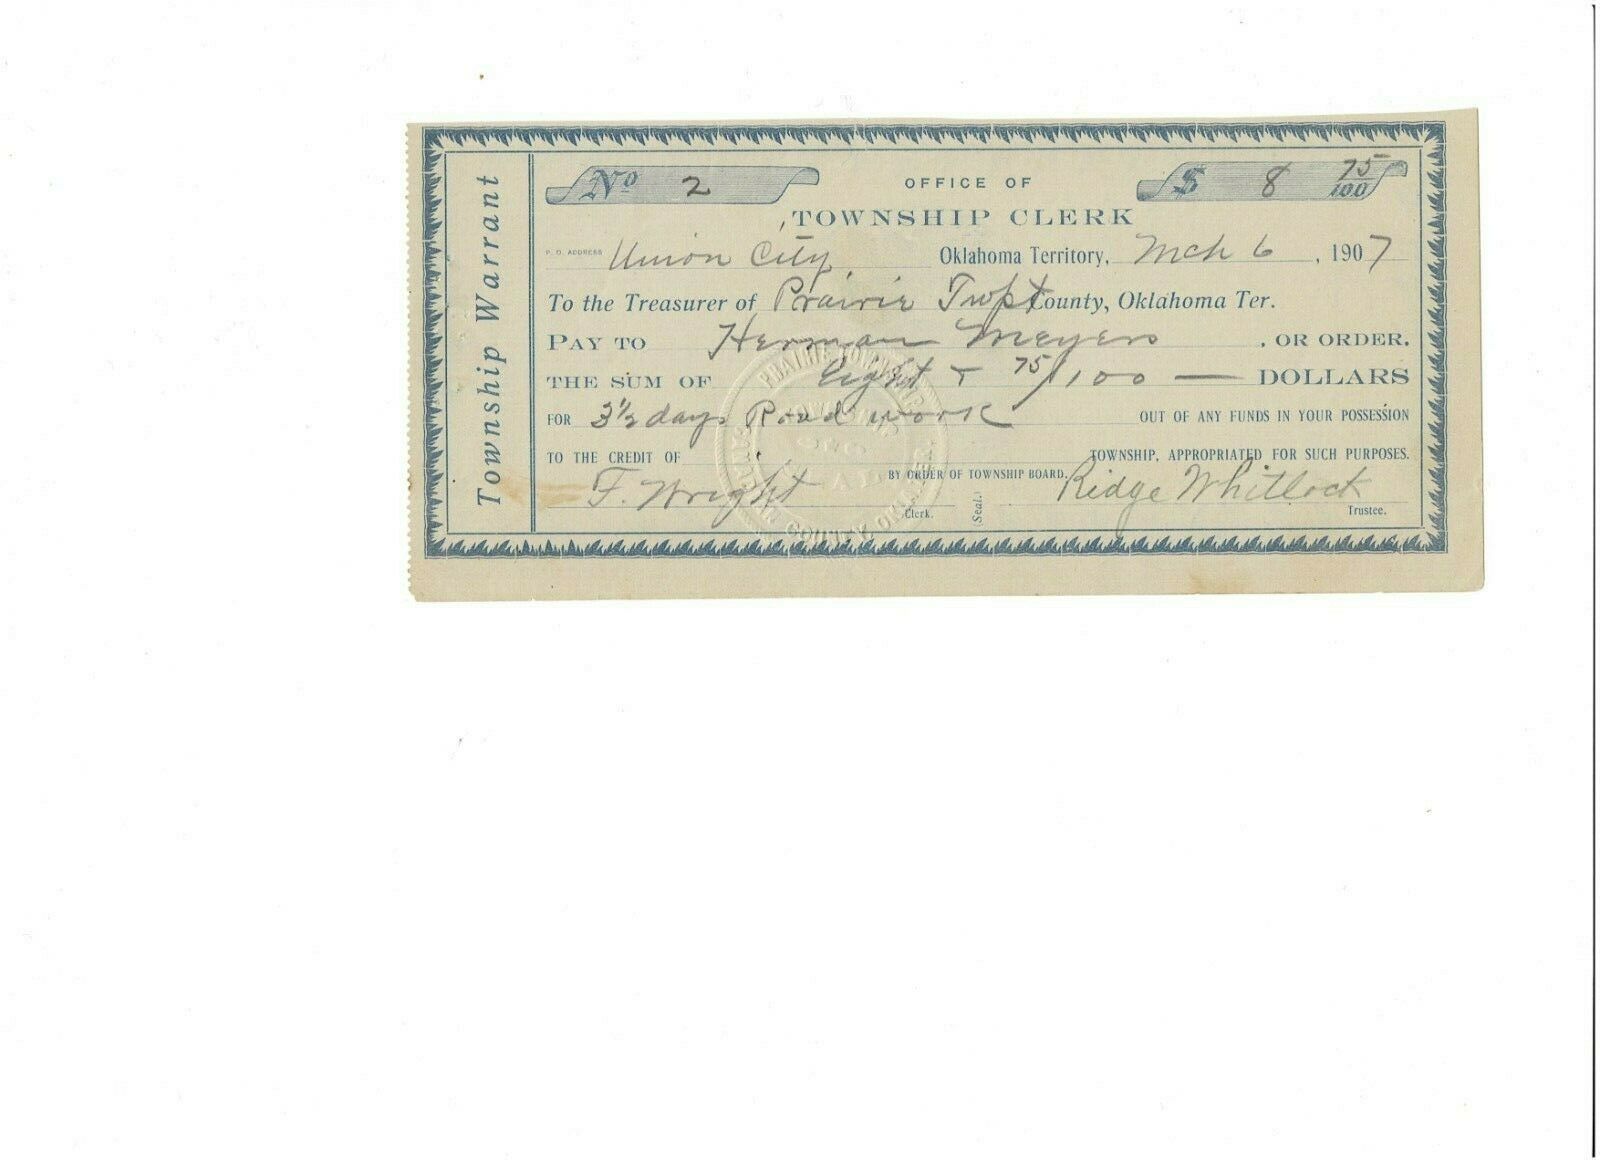 Township Warrant
No 2
OFFICE OF
$ 8 75/100
TOWNSHIP CLERK
P. O. ADDRESS Union City, Oklahoma Territory, Mch 6, 1907
To the Treasurer of Prairie Twpt County, Oklahoma Ter.
PAY TO Herman Meyers, OR ORDER.
THE SUM OF Eight & 75/100 — DOLLARS
FOR 3 1/2 days Road work OUT OF ANY FUNDS IN YOUR POSSESSION
TO THE CREDIT OF TOWNSHIP, APPROPRIATED FOR SUCH PURPOSES.
F. Wright BY ORDER OF TOWNSHIP BOARD. Ridge Whitlock
Clerk. Seal. Trustee.
PRAIRIE TOWNSHIP
SEAL
COUNTY, OKLA